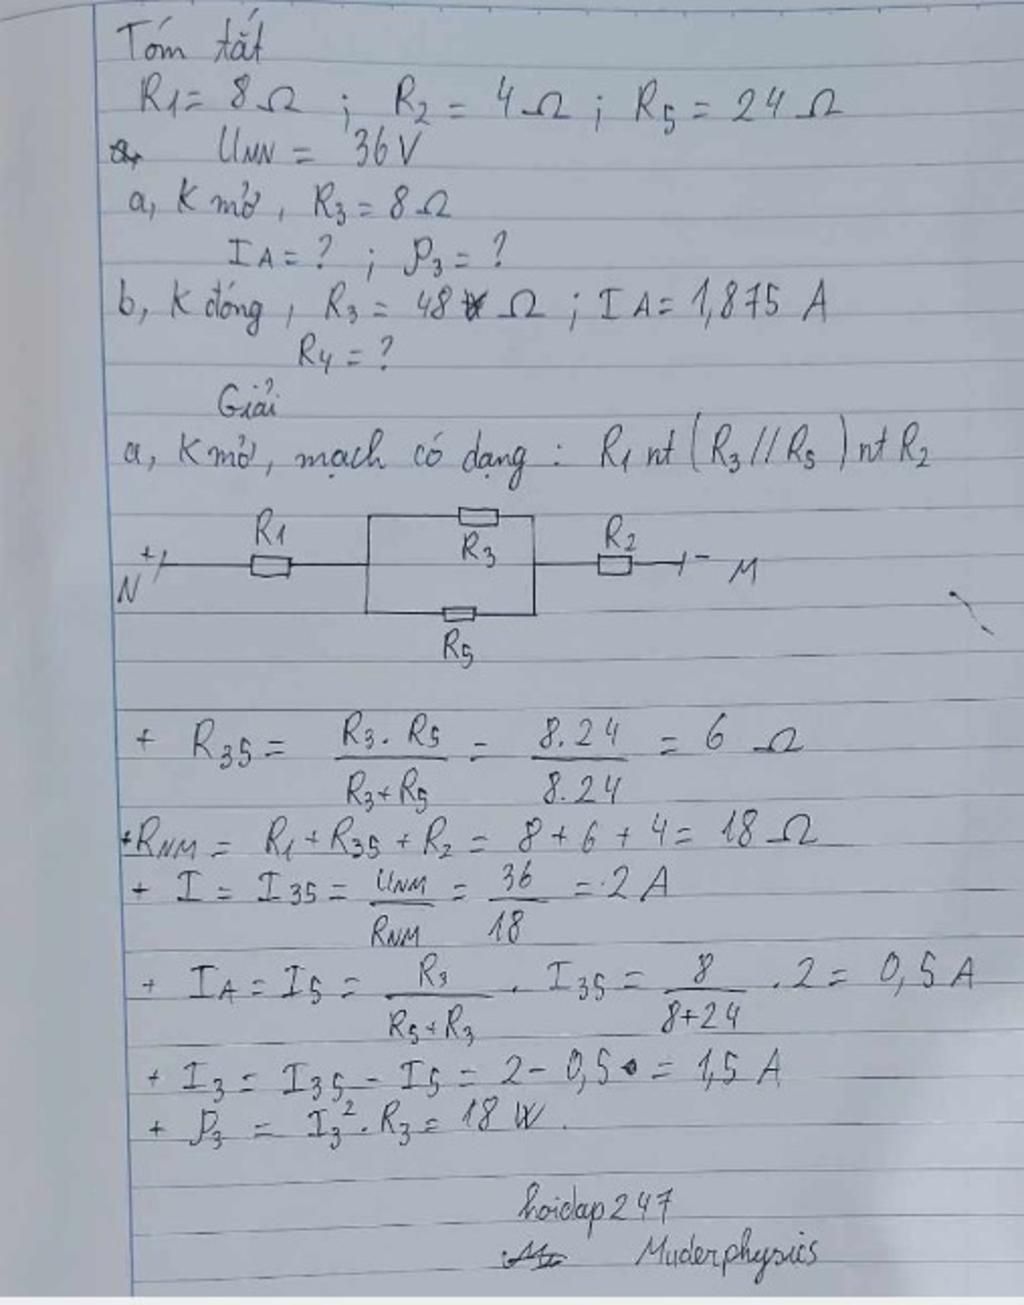 Tóm tắt
R1 = 8 Ω ; R2 = 4 Ω ; R5 = 24 Ω
UMN = 36V
a, K mở, R3 = 8 Ω
IA = ? ; P3 = ?
b, K đóng, R3 = 48 Ω ; IA = 1,875 A
R4 = ?
Giải
a, K mở, mạch có dạng : R1 nt (R3 // R5) nt R2
R1 R3 R2
N + - M
R5
+ R35 = R3 . R5 / R3 + R5 = 8.24 / 8.24 = 6 Ω
+ RNM = R1 + R35 + R2 = 8 + 6 + 4 = 18 Ω
+ I = I35 = UNM / RNM = 36 / 18 = 2 A
+ IA = I5 = R3 / R5 + R3 . I35 = 8 / 8+24 . 2 = 0,5 A
+ I3 = I35 - I5 = 2 - 0,5 = 1,5 A
+ P3 = I3² . R3 = 18 W.
hoidap247
Muderphysics